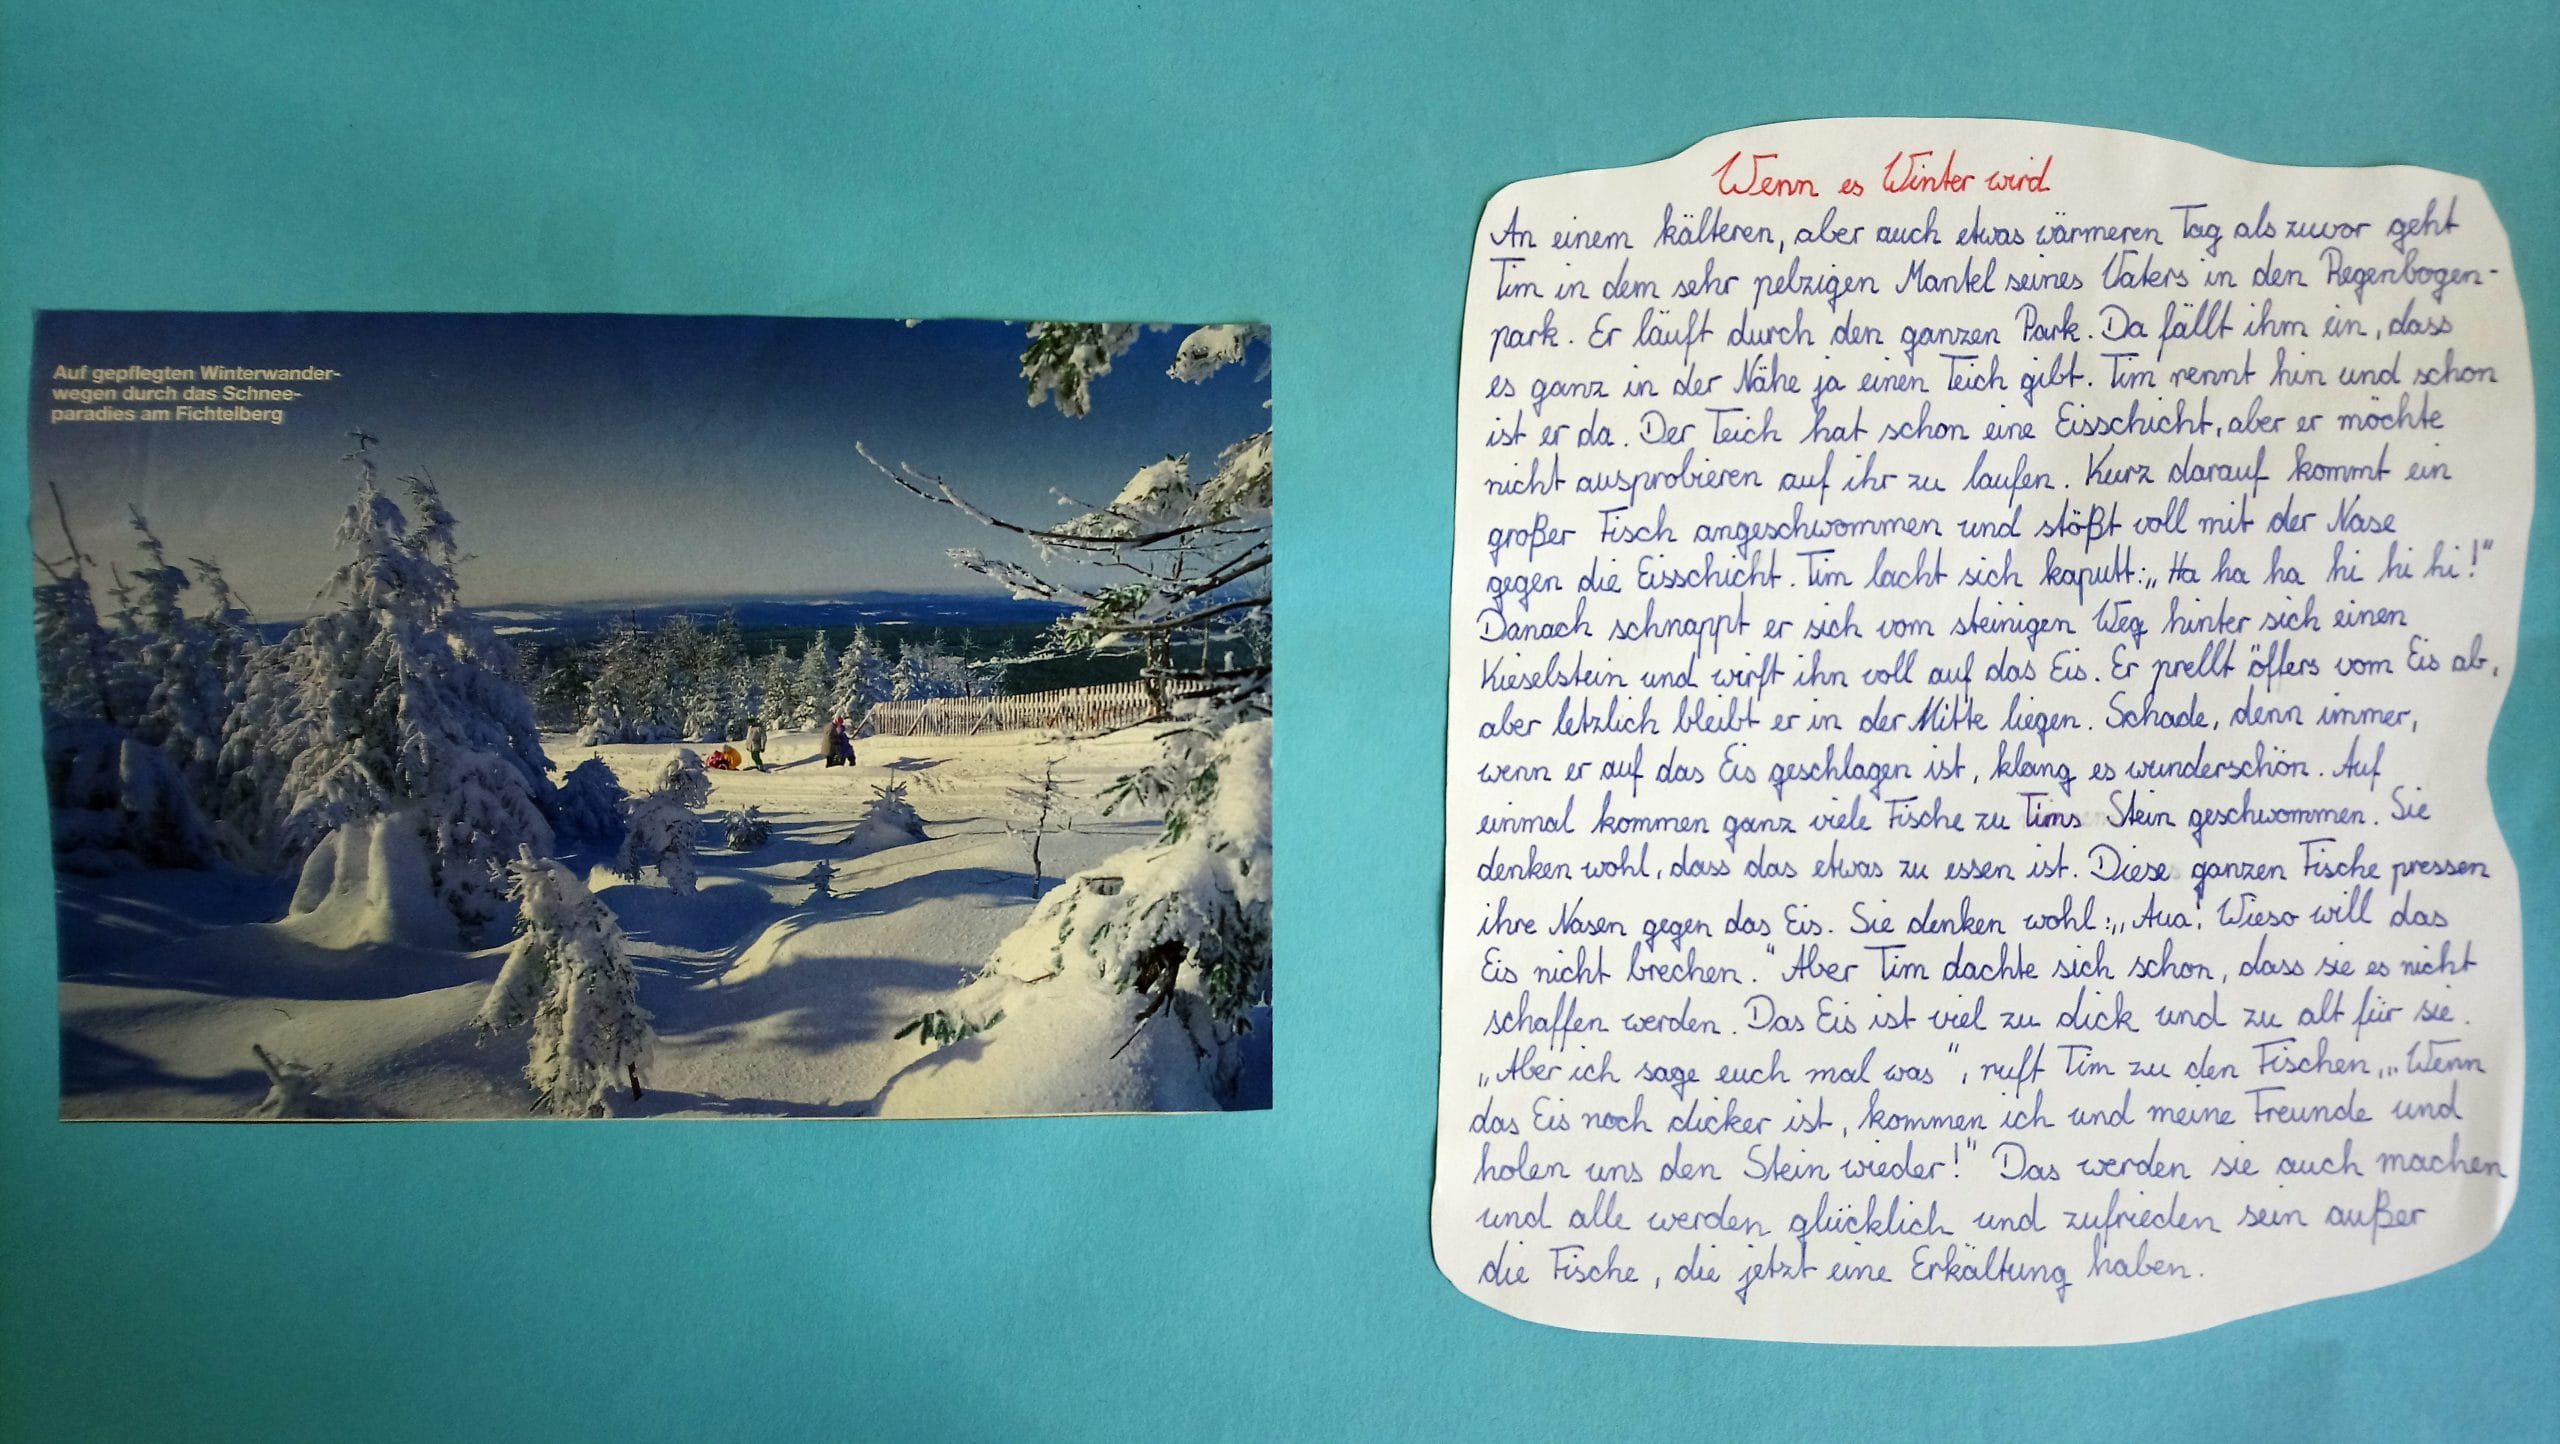 Auf gepflegten Winterwander-
wegen durch das Schnee-
paradies am Fichtelberg
Wenn es Winter wird
An einem kälteren, aber auch etwas wärmeren Tag als zuvor geht
Tim in dem sehr pelzigen Mantel seines Vaters in den Regenbogen-
park. Er läuft durch den ganzen Park. Da fällt ihm ein, dass
es ganz in der Nähe ja einen Teich gibt. Tim rennt hin und schon
ist er da. Der Teich hat schon eine Eisschicht, aber er möchte
nicht ausprobieren auf ihr zu laufen. Kurz darauf kommt ein
großer Fisch angeschwommen und stößt voll mit der Nase
gegen die Eisschicht. Tim lacht sich kaputt: „Ha ha ha hi hi hi!"
Danach schnappt er sich vom steinigen Weg hinter sich einen
Kieselstein und wirft ihn voll auf das Eis. Er prellt öffers vom Eis ab,
aber letzlich bleibt er in der Mitte liegen. Schade, denn immer,
wenn er auf das Eis geschlagen ist, klang es wunderschön. Auf
einmal kommen ganz viele Fische zu Tims Stein geschwommen. Sie
denken wohl, dass das etwas zu essen ist. Diese ganzen Fische pressen
ihre Nasen gegen das Eis. Sie denken wohl: „Aua! Wieso will das
Eis nicht brechen." Aber Tim dachte sich schon, dass sie es nicht
schaffen werden. Das Eis ist viel zu dick und zu alt für sie.
„Aber ich sage euch mal was", ruft Tim zu den Fischen, „Wenn
das Eis noch dicker ist, kommen ich und meine Freunde und
holen uns den Stein wieder!" Das werden sie auch machen
und alle werden glücklich und zufrieden sein außer
die Fische, die jetzt eine Erkältung haben.